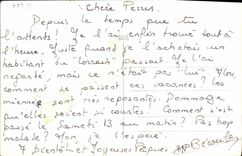 Chère Perrus.
Depuis le temps que tu
l'attends ! Je l'ai enfin trouvé tout à
l'heure. Juste quand je l'achetais un
habitant du "Lorrain" passait. Je l'ai
reparté, mais ce n'était pas "lui". Alors,
comment se passent ces vacances ? les
miennes sont très reposantes. Dommage
qu'elles soient si courtes ! Comment s'est
passé le samedi 13 au matin ? Pas trop
malade ? Non, je l'espère.
A bientôt et Joyeuses Pâques